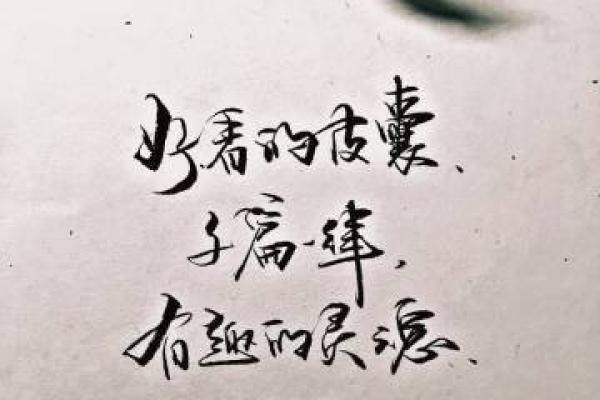 好看的皮囊、
千篇一律，
有趣的灵魂、